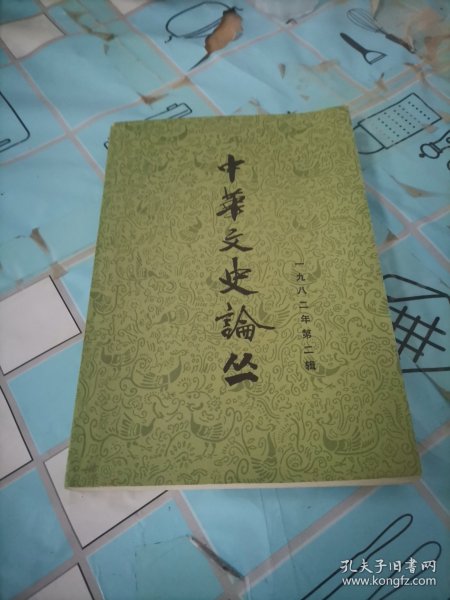 中華文史論丛
一九八二年第二辑
孔夫子旧书网
www.kongfz.com